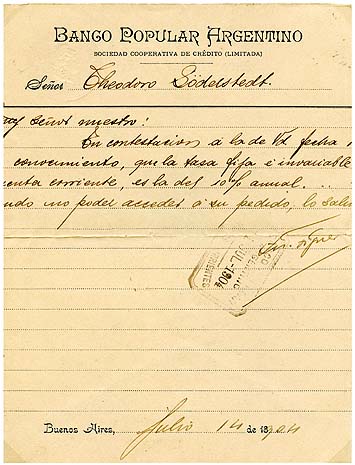 BANCO POPULAR ARGENTINO
SOCIEDAD COOPERATIVA DE CRÉDITO (LIMITADA)
Señor Theodoro Södelstedt.
Señor nuestro:
En contestacion á la de Vd. fecha
conocimiento, que la tasa fija é invariable
corriente, es la del 10% anual...
no poder acceder á su pedido, lo
JUL-1904
Buenos Aires, Julio 14 de 1904